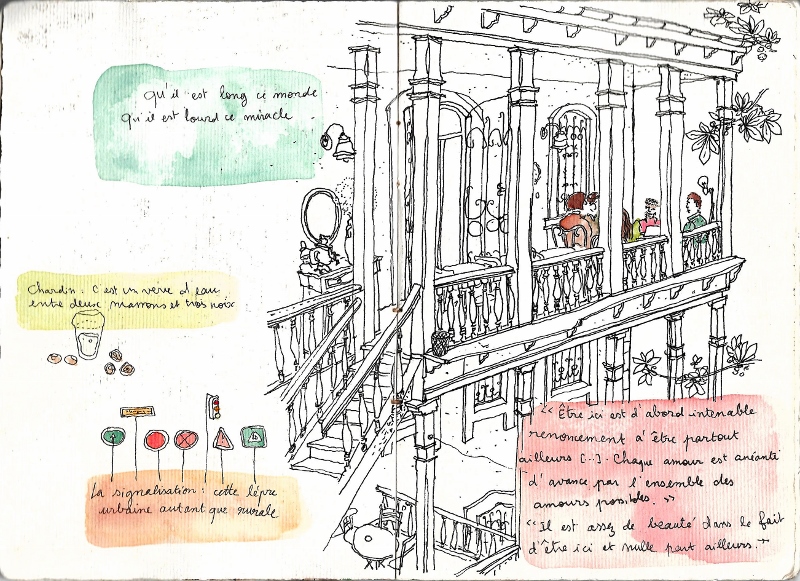 qu'il est long ce monde
qu'il est lourd ce miracle
Chardin : C'est un verre d'eau
entre deux marrons et trois noix
La signalisation : cette lèpre
urbaine autant que rurale
"Être ici est d'abord intenable
renoncement à être partout
ailleurs [...]. Chaque amour est anéanti
d'avance par l'ensemble des
amours possibles."
"Il est assez de beauté dans le fait
d'être ici et nulle part ailleurs."